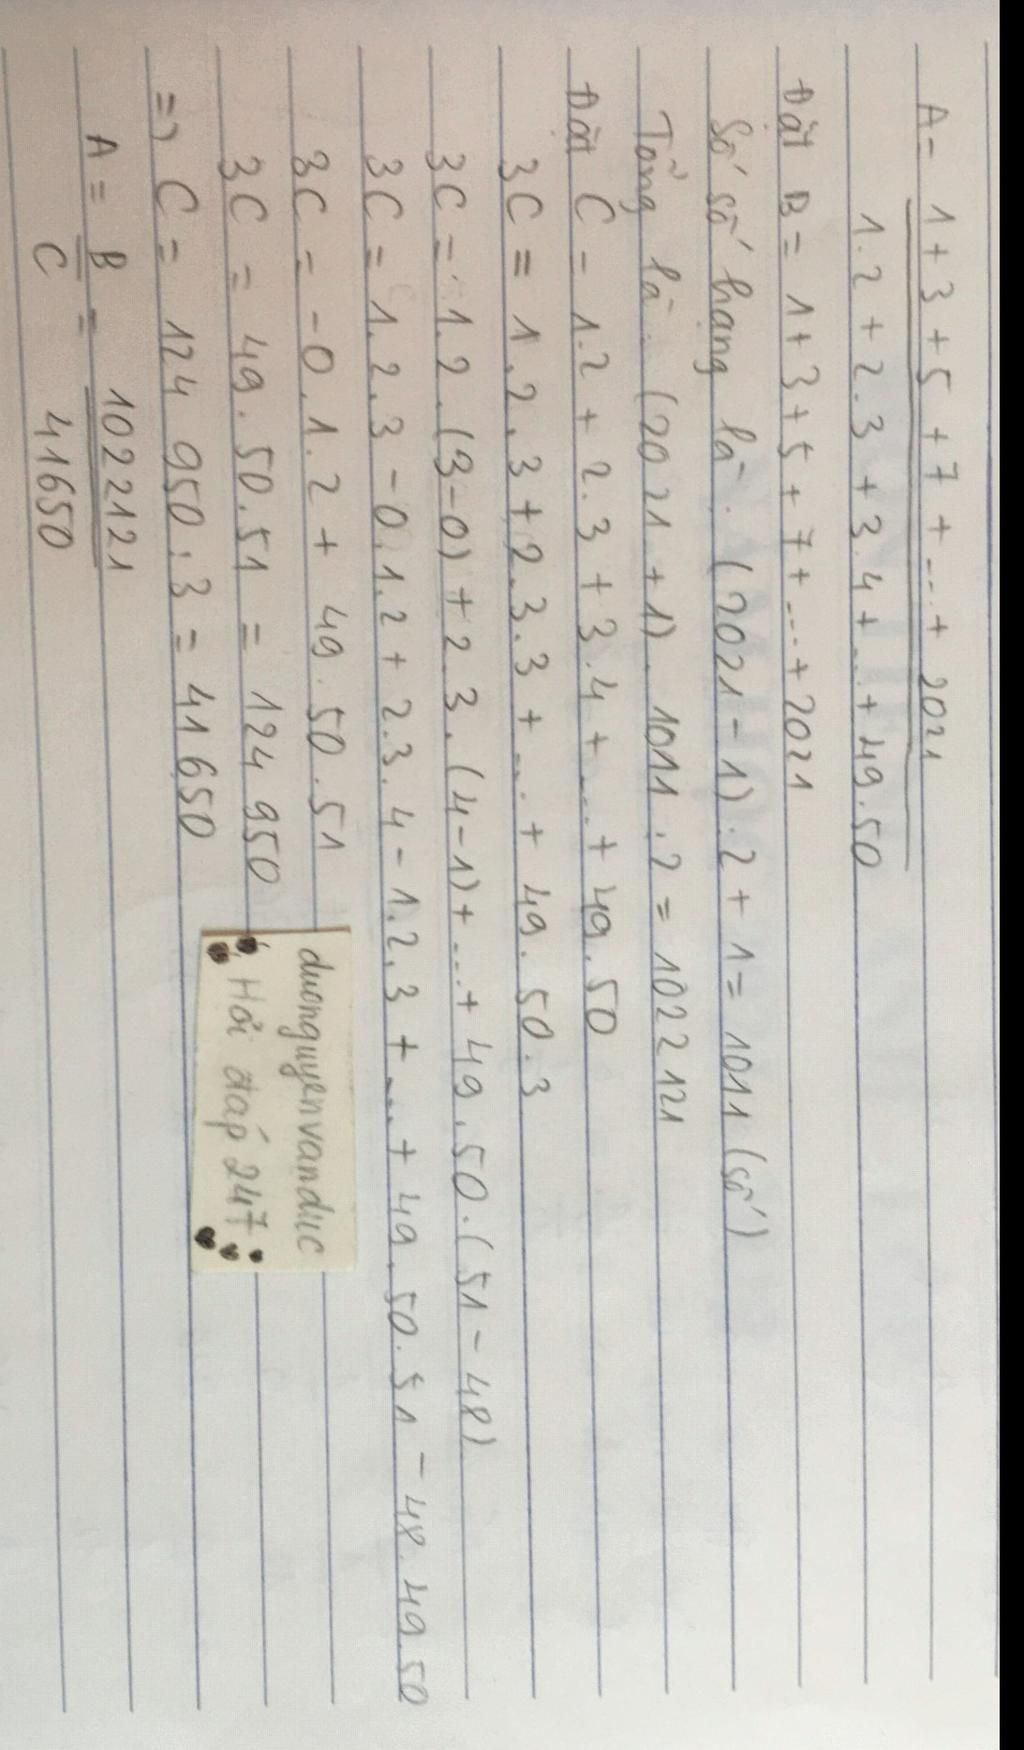 A = 1 + 3 + 5 + 7 + ... + 2021
1.2 + 2.3 + 3.4 + ... + 49.50
Đặt B = 1 + 3 + 5 + 7 + ... + 2021
Số số hạng là : (2021 - 1) : 2 + 1 = 1011 (số)
Tổng là : (2021 + 1) . 1011 : 2 = 1022121
Đặt C = 1.2 + 2.3 + 3.4 + ... + 49.50
3C = 1.2.3 + 2.3.3 + ... + 49.50.3
3C = 1.2.(3-0) + 2.3.(4-1) + ... + 49.50.(51-48)
3C = 1.2.3 - 0.1.2 + 2.3.4 - 1.2.3 + ... + 49.50.51 - 48.49.50
3C = -0.1.2 + 49.50.51
3C = 49.50.51 = 124 950
=> C = 124 950 : 3 = 41 650
A = B/C = 1022121/41650
duonguyenvanduc
Hỏi đáp 247